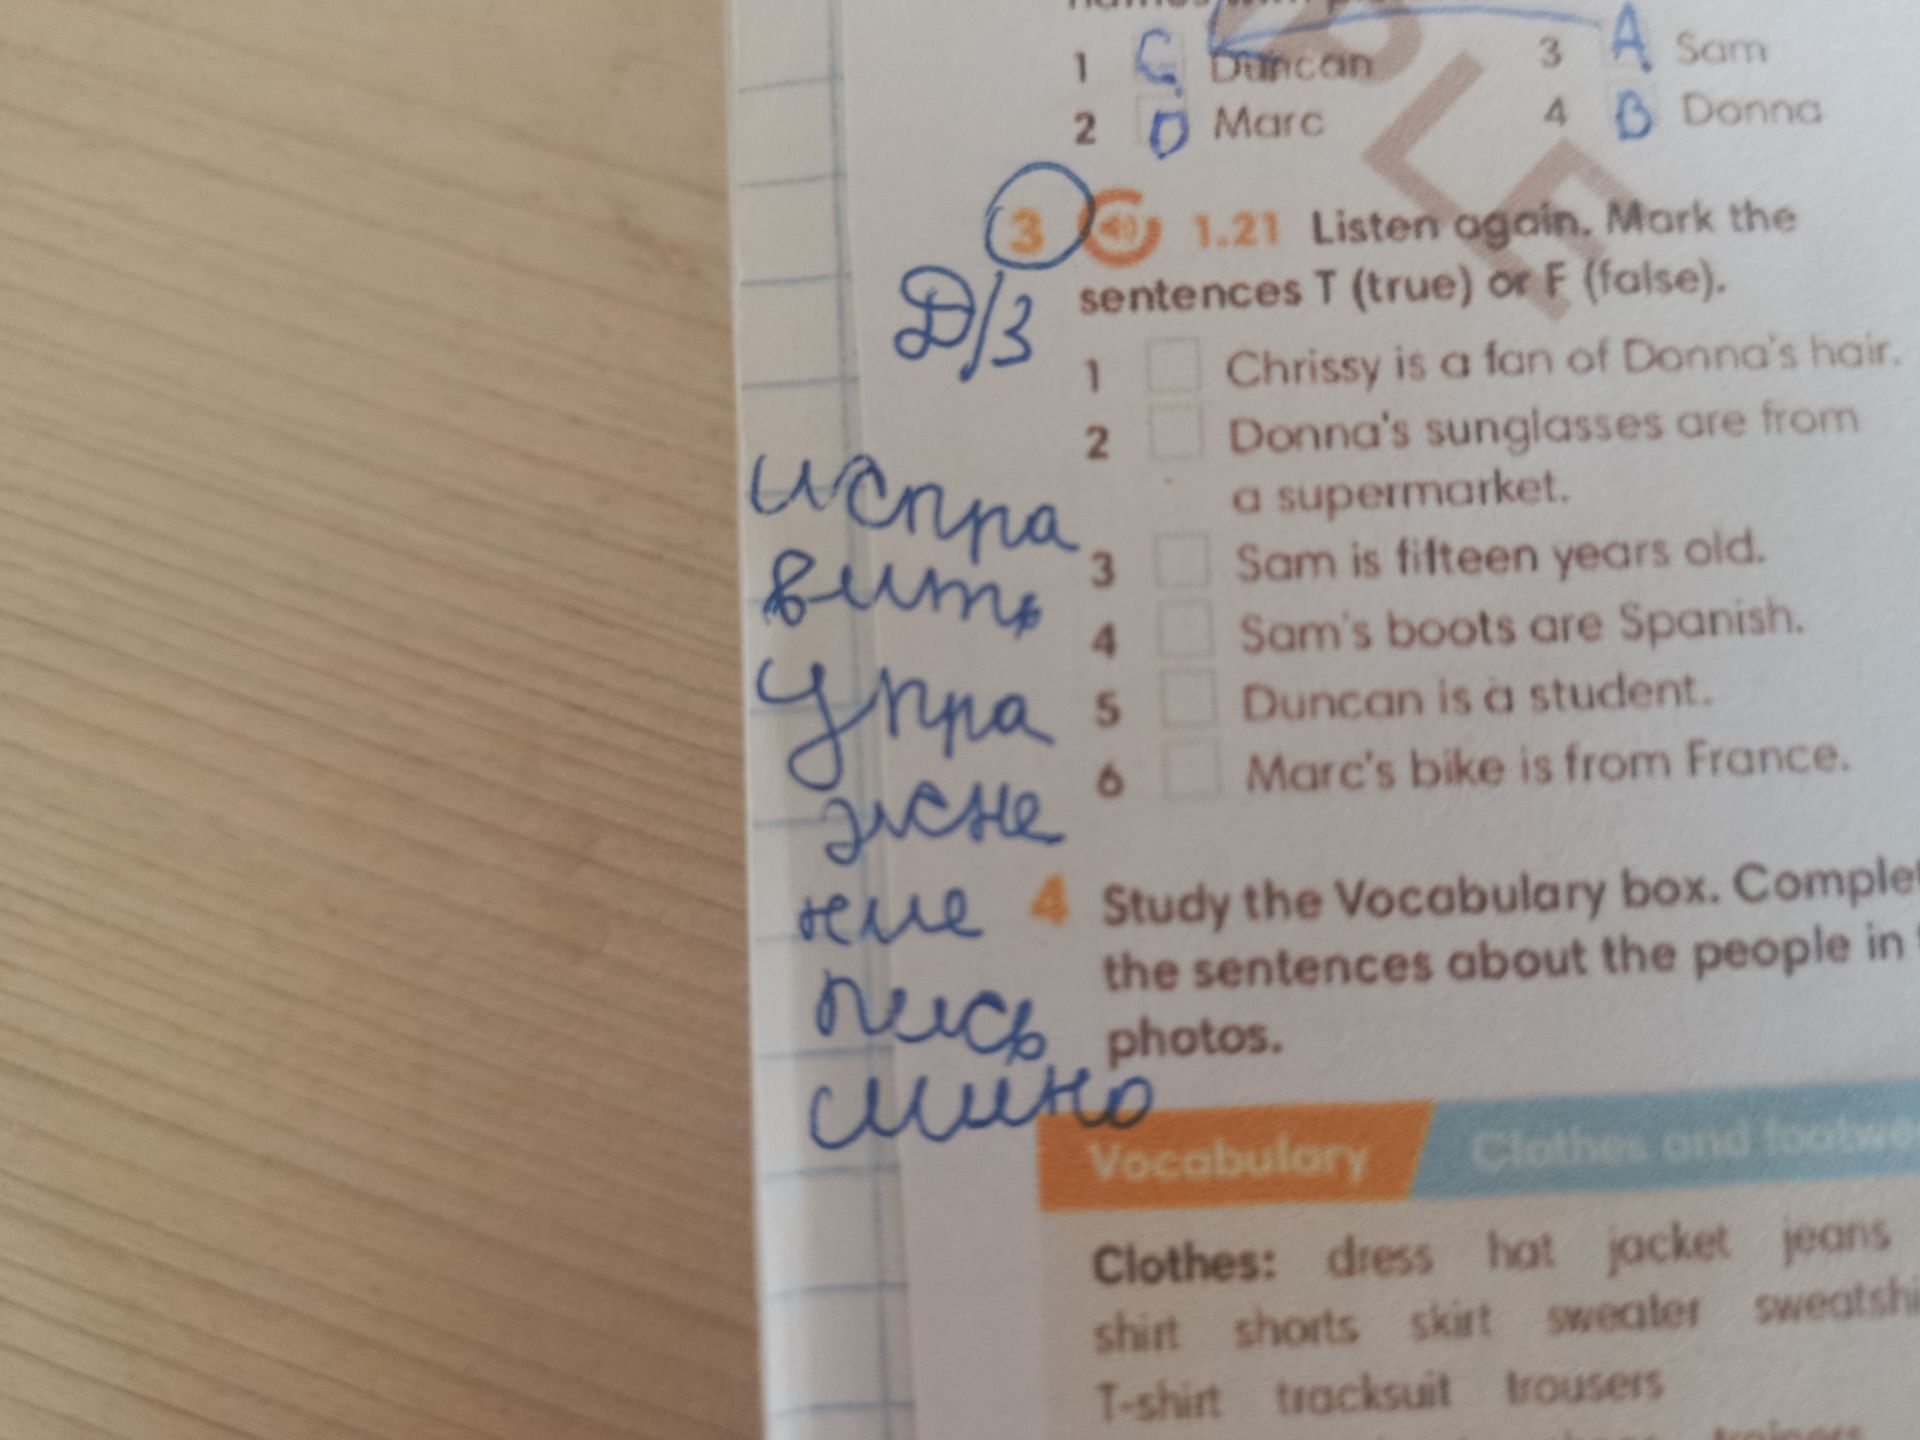 1 C Duncan 3 A Sam
2 D Marc 4 B Donna
3 1.21 Listen again. Mark the
sentences T (true) or F (false).
Д/З
1 Chrissy is a fan of Donna's hair.
2 Donna's sunglasses are from
a supermarket.
3 Sam is fifteen years old.
4 Sam's boots are Spanish.
5 Duncan is a student.
6 Marc's bike is from France.
испра
вить
упра
жне
ние
пись
мино
4 Study the Vocabulary box. Complet
the sentences about the people in t
photos.
Vocabulary Clothes and footwe
Clothes: dress hat jacket jeans
shirt shorts skirt sweater sweatshi
T-shirt tracksuit trousers
trainers